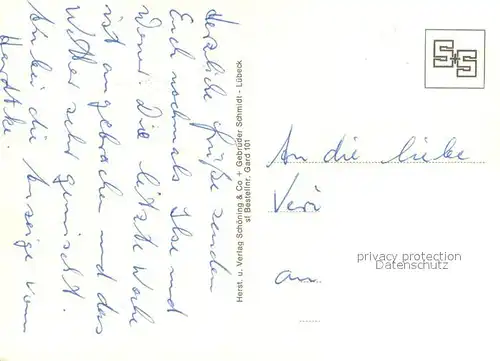 Herzliche Grüße senden
Euch nochmals Ilse und
Werner. Die letzte Woche
ist angebrochen und das
Wetter sehr gemischt.
Anbei die Anzeige vom
Hardtke.
Herst. u. Verlag Schöning & Co + Gebrüder Schmidt - Lübeck
st Bestellnr. Gard 101
S+S
An die liebe
Veri
an
privacy protection
Datenschutz